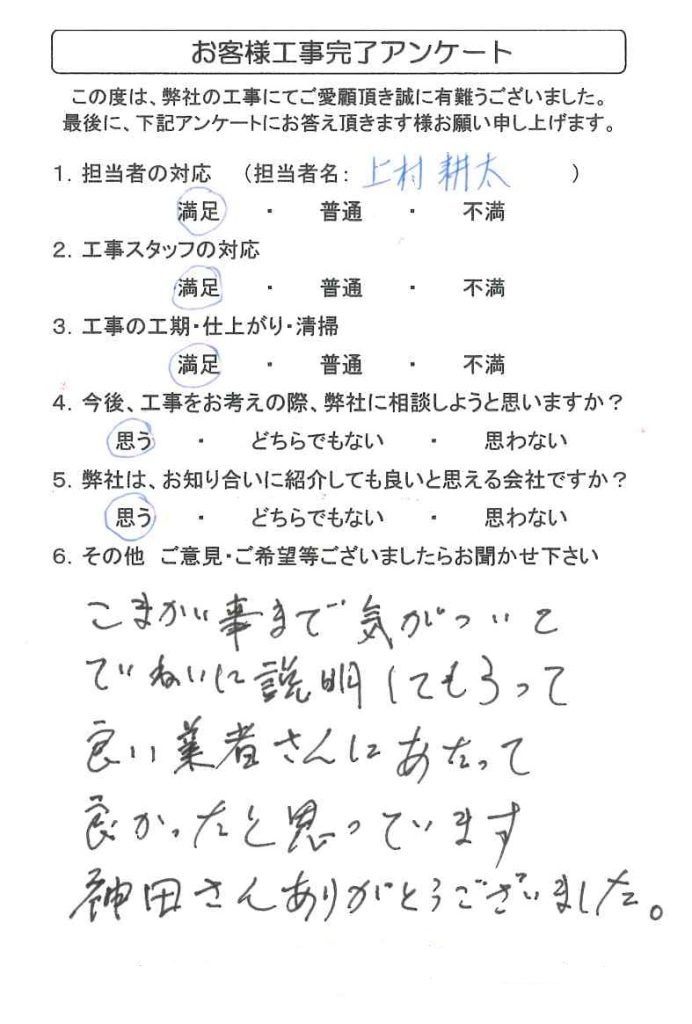 お客様工事完了アンケート
この度は、弊社の工事にてご愛願頂き誠に有難うございました。
最後に、下記アンケートにお答え頂きます様お願い申し上げます。
1. 担当者の対応 （担当者名： 上村 耕太 ）
満足 ・ 普通 ・ 不満
2. 工事スタッフの対応
満足 ・ 普通 ・ 不満
3. 工事の工期・仕上がり・清掃
満足 ・ 普通 ・ 不満
4. 今後、工事をお考えの際、弊社に相談しようと思いますか？
思う ・ どちらでもない ・ 思わない
5. 弊社は、お知り合いに紹介しても良いと思える会社ですか？
思う ・ どちらでもない ・ 思わない
6. その他 ご意見・ご希望等ございましたらお聞かせ下さい
こまかい事まで気がついて
ていねいに説明してもらって
良い業者さんにあたって
良かったと思っています
神田さんありがとうございました。